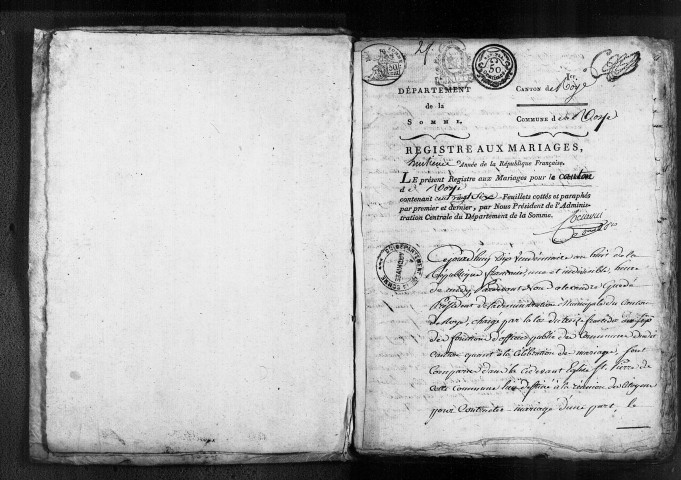 DÉPARTEMENT
de la
SOMME.
CANTON de Roye
COMMUNE de Roye
REGISTRE AUX MARIAGES,
huitieme Année de la République Française.
LE présent Registre aux Mariages pour le canton
d Roye
contenant cent vingt Feuillets cottés et paraphés
par premier et dernier, par Nous Président de l'Adminis-
tration Centrale du Département de la Somme.
Cejourd'huy dix Vendémiaire an huit de la
République francaise, une et indivisible, heure
de midy Pardevant Nous alexandre
Président de l'administration Municipale du Canton
de Roye, chargé par la loi du treize fructidor an six
des fonctions d'officier public des Communes dudit
Canton quant à la Célébration des mariages, sont
Comparus dans la cidevant Eglise St. Pierre de
cette Commune lieu destiné à la réunion des citoyens
pour Contracter mariage d'une part, le